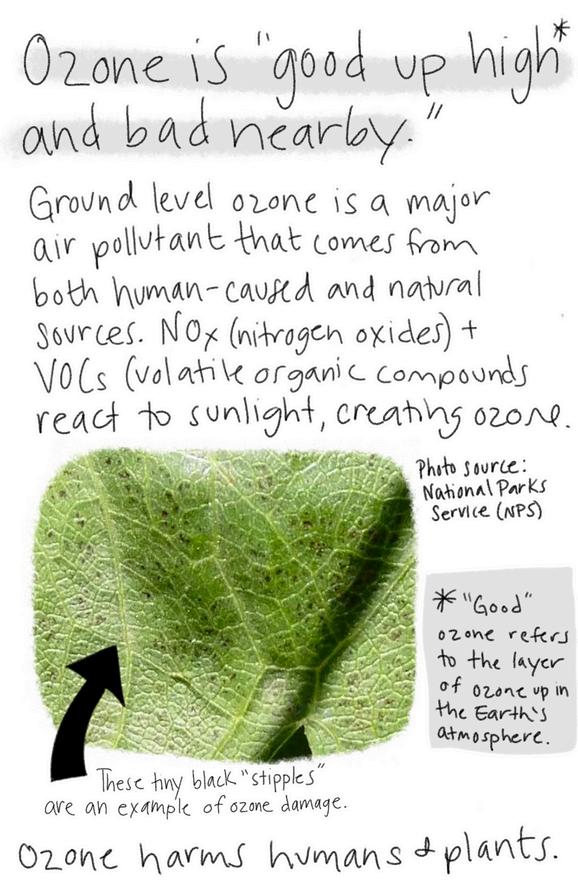 Ozone is "good up high*
and bad nearby."
Ground level ozone is a major
air pollutant that comes from
both human-caused and natural
sources. NOx (nitrogen oxides) +
VOCs (volatile organic compounds
react to sunlight, creating ozone.
Photo source:
National Parks
Service (NPS)
* "Good"
ozone refers
to the layer
of ozone up in
the Earth's
atmosphere.
These tiny black "stipples"
are an example of ozone damage.
Ozone harms humans & plants.